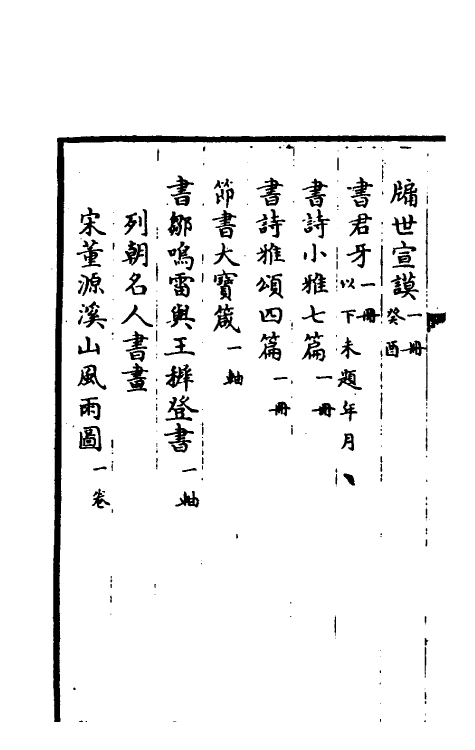 牖世宣謨一冊癸酉
書君牙一冊以下未題年月
書詩小雅七篇一冊
書詩雅頌四篇一冊
節書大寶箴一軸
書鄒鳴雷與王搱登書一軸
列朝名人書畫
宋董源溪山風雨圖一卷